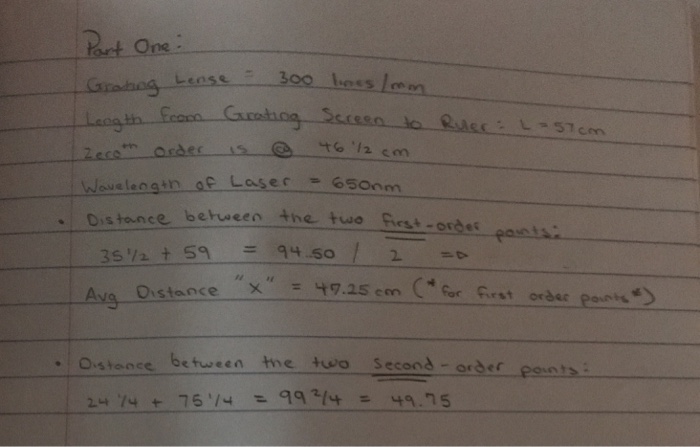 Part One:
Grating Lense = 300 lines/mm
Length from Grating Screen to Ruler: L = 57cm
Zeroth Order is @ 46 1/2 cm
Wavelength of Laser = 650nm
• Distance between the two first-order points:
35 1/2 + 59 = 94.50 / 2 =>
Avg Distance "x" = 47.25 cm (* for first order points *)
• Distance between the two second-order points:
24 1/4 + 75 1/4 = 99 2/4 = 49.75